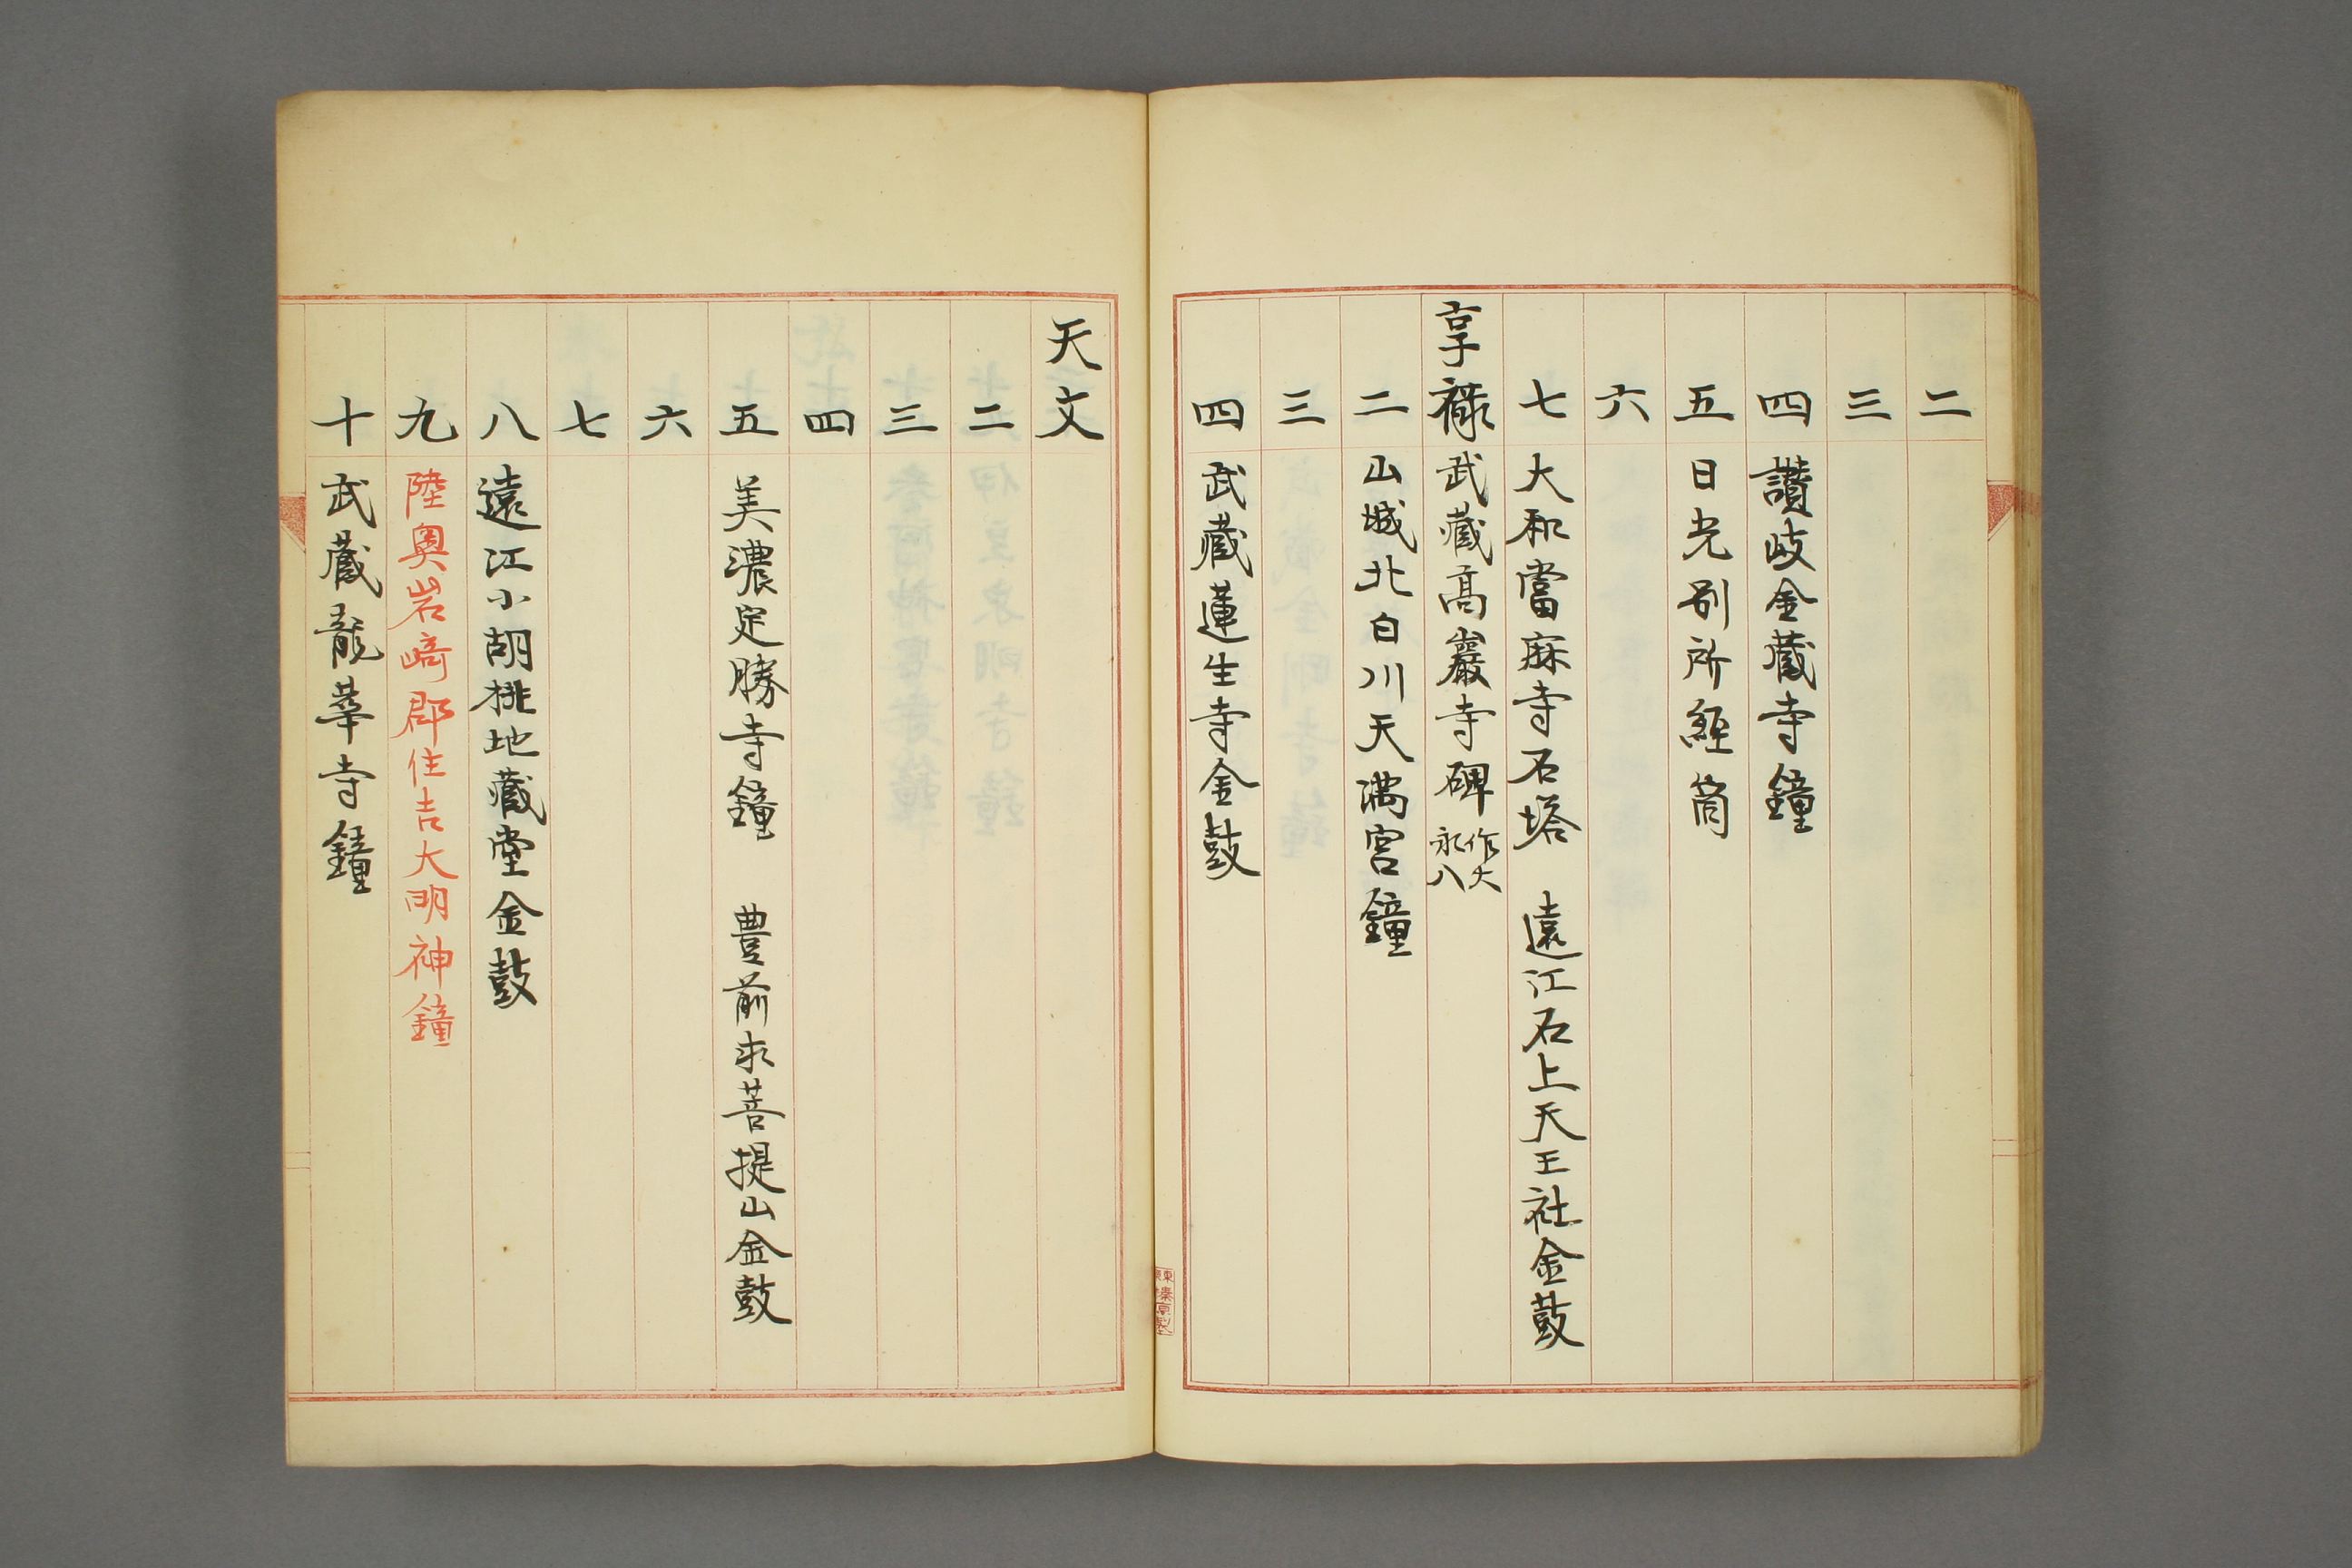 二
三
四 讃岐金蔵寺鐘
五 日光別所経筒
六
七 大和當麻寺石塔 遠江石上天王社金鼓
享禄 武藏髙巖寺碑 作大永八
二 山城北白川天満宮鐘
三
四 武藏蓮生寺金鼓
天文
二
三
四
五 美濃定勝寺鐘 豊前求菩提山金鼓
六
七
八 遠江小胡桃地藏堂金鼓
九 陸奥岩﨑郡住吉大明神鐘
十 武藏龍華寺鐘